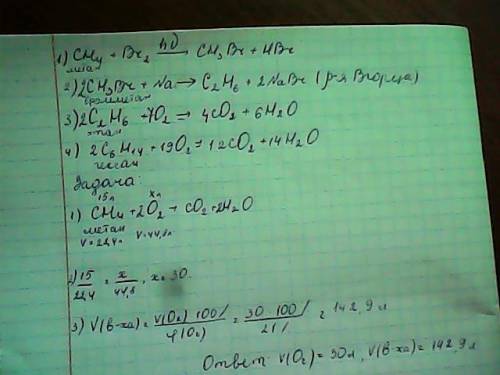 1) CH4 + Br2 hν→ CH3Br + HBr
метан
2) 2CH3Br + Na → C2H6 + 2NaBr (р-я Вюрца)
бромметан
3) 2C2H6 + 7O2 → 4CO2 + 6H2O
этан
4) 2C6H14 + 19O2 = 12CO2 + 14H2O
гексан
Задача:
15л xл
1) CH4 + 2O2 → CO2 + 2H2O
метан
V=22,4л V=44,8л
2) 15/22,4 = x/44,8, x=30
3) V(в-ха) = V(O2)·100%/φ(O2) = 30·100%/21% = 142,9л
Ответ: V(O2) = 30л, V(в-ха) = 142,9л